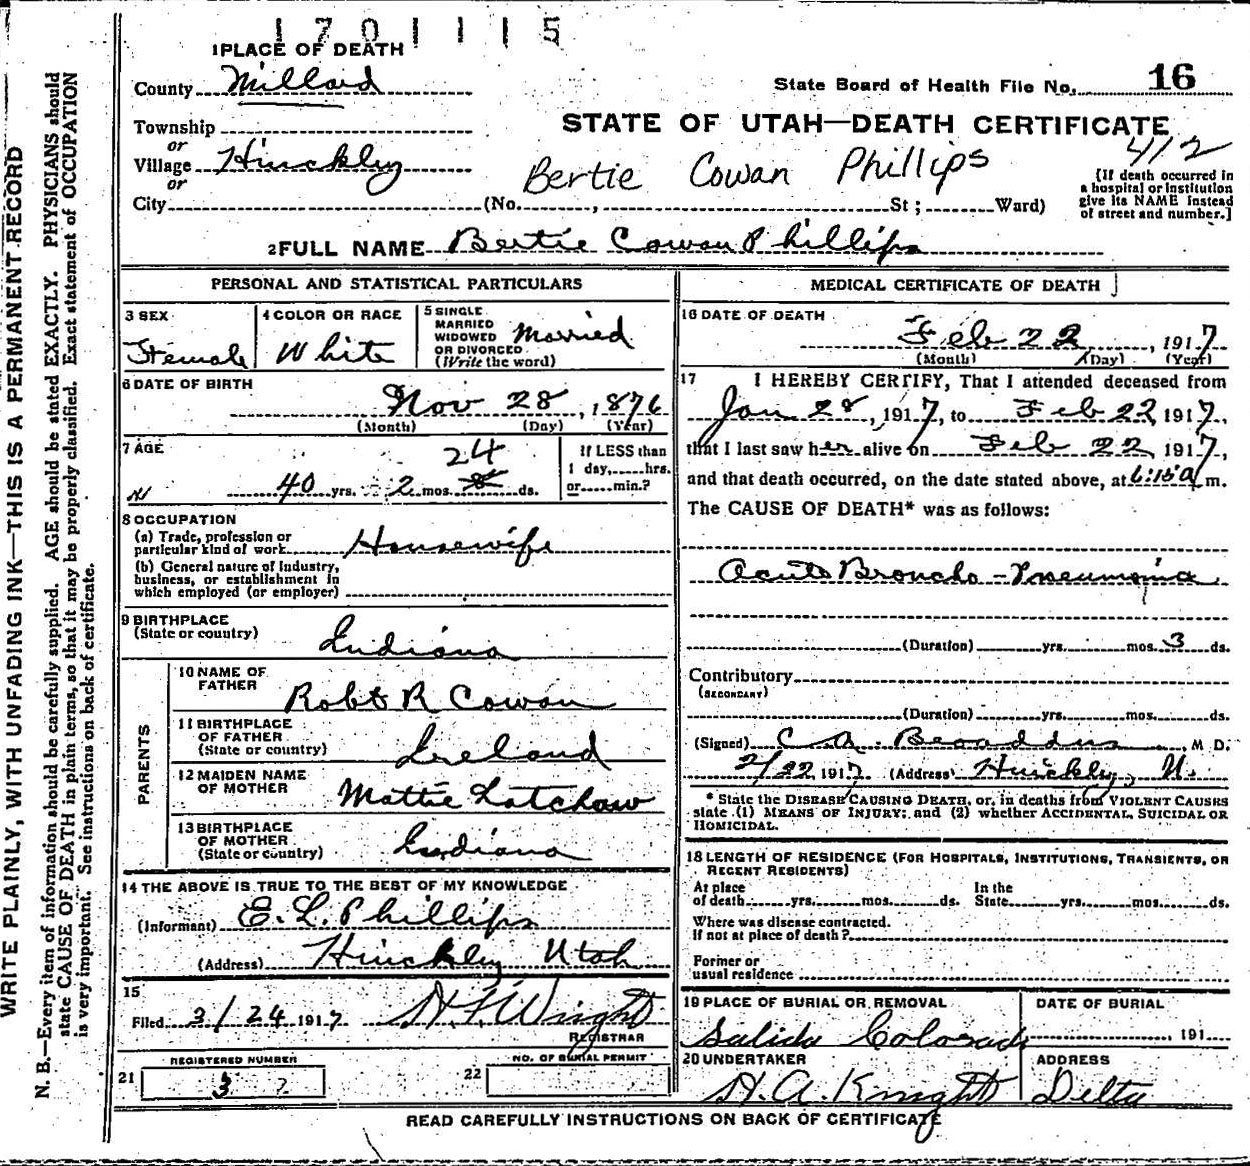 1701115
1 PLACE OF DEATH
County Millard
State Board of Health File No. 16
Township
or
Village Hinckley
or
City (No. , St ; Ward)
STATE OF UTAH—DEATH CERTIFICATE
412
Bertie Cowan Phillips
[If death occurred in
a hospital or institution
give its NAME instead
of street and number.]
2 FULL NAME Bertie Cowan Phillips
PERSONAL AND STATISTICAL PARTICULARS
3 SEX
Female
4 COLOR OR RACE
White
5 SINGLE
MARRIED
WIDOWED
OR DIVORCED
(Write the word)
Married
6 DATE OF BIRTH
Nov 28, 1876
(Month) (Day) (Year)
7 AGE
24
40 yrs. 2 mos. ds.
If LESS than
1 day, hrs.
or min.?
8 OCCUPATION
(a) Trade, profession or
particular kind of work Housewife
(b) General nature of Industry,
business, or establishment in
which employed (or employer)
9 BIRTHPLACE
(State or country) Indiana
PARENTS
10 NAME OF
FATHER Robt R Cowan
11 BIRTHPLACE
OF FATHER
(State or country) Ireland
12 MAIDEN NAME
OF MOTHER Mattie Latchaw
13 BIRTHPLACE
OF MOTHER
(State or country) Indiana
14 THE ABOVE IS TRUE TO THE BEST OF MY KNOWLEDGE
(Informant) E. L. Phillips
(Address) Hinckley Utah
15
Filed 3/24 1917 H. F. Wright
REGISTRAR
REGISTERED NUMBER
21 3
NO. OF BURIAL PERMIT
22
MEDICAL CERTIFICATE OF DEATH
16 DATE OF DEATH
Feb 22, 1917
(Month) (Day) (Year)
17 I HEREBY CERTIFY, That I attended deceased from
Jan 28, 1917, to Feb 22, 1917,
that I last saw her alive on Feb 22, 1917,
and that death occurred, on the date stated above, at 6:15 a m.
The CAUSE OF DEATH* was as follows:
Acute Broncho-Pneumonia
(Duration) yrs. mos. 3 ds.
Contributory
(SECONDARY)
(Duration) yrs. mos. ds.
(Signed) C. A. Broaddus, M D.
2/22 1917 (Address) Hinckley, U.
* State the DISEASE CAUSING DEATH, or, in deaths from VIOLENT CAUSES
state (1) MEANS OF INJURY; and (2) whether ACCIDENTAL, SUICIDAL OR
HOMICIDAL.
18 LENGTH OF RESIDENCE (FOR HOSPITALS, INSTITUTIONS, TRANSIENTS, OR
RECENT RESIDENTS)
At place
of death yrs. mos. ds.
In the
State yrs. mos. ds.
Where was disease contracted.
If not at place of death?
Former or
usual residence
19 PLACE OF BURIAL OR REMOVAL
Salida Colorado
DATE OF BURIAL
191
20 UNDERTAKER
H. A. Knight
ADDRESS
Delta
READ CAREFULLY INSTRUCTIONS ON BACK OF CERTIFICATE
WRITE PLAINLY, WITH UNFADING INK—THIS IS A PERMANENT RECORD
N. B.—Every item of information should be carefully supplied. AGE should be stated EXACTLY. PHYSICIANS should
state CAUSE OF DEATH in plain terms, so that it may be properly classified. Exact statement of OCCUPATION
is very important. See instructions on back of certificate.